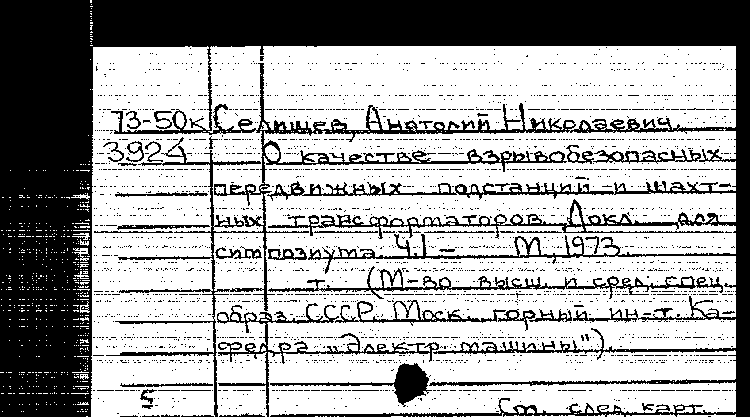 73-50к Селищев, Анатолий Николаевич.
3924 О качестве взрывобезопасных
передвижных подстанций и шахт-
ных трансформаторов. Докл. для
симпозиума. Ч.1 – М., 1973.
т. (М-во высш. и сред. спец.
образ. СССР. Моск. горный ин-т. Ка-
федра „Электр. машины").
5
См. след. карт.